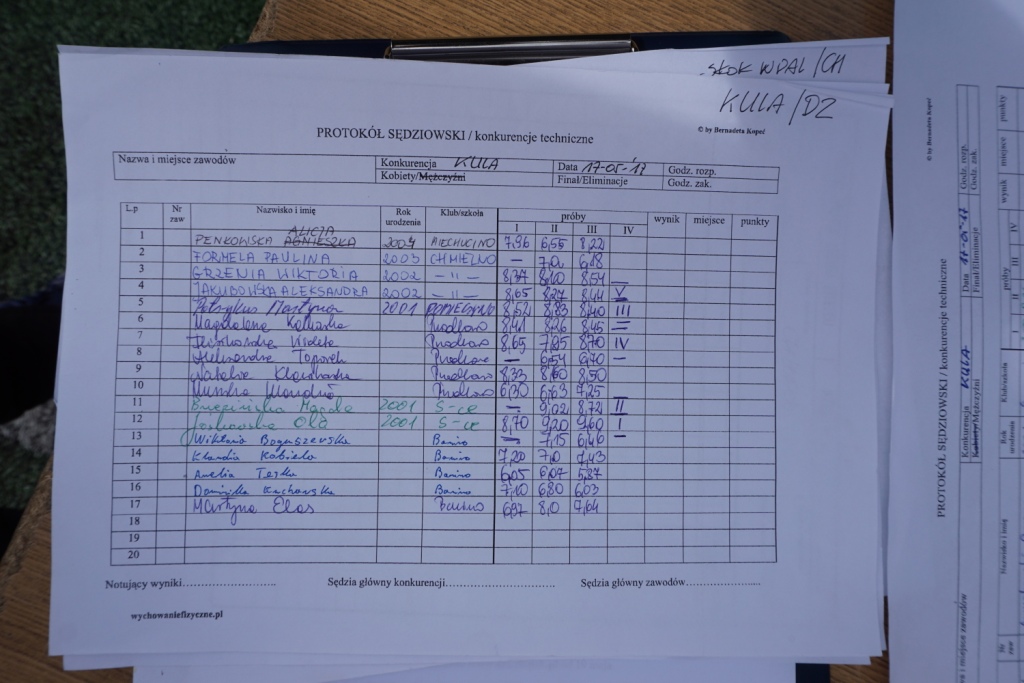 skok WDAL/CH
KULA/DZ
© by Bernadeta Kopeć
PROTOKÓŁ SĘDZIOWSKI / konkurencje techniczne
Nazwa i miejsce zawodów Konkurencja KULA Data 17-05-17 Godz. rozp.
Kobiety/Mężczyźni Finał/Eliminacje Godz. zak.
L.p Nr zaw Nazwisko i imię Rok urodzenie Klub/szkoła próby wynik miejsce punkty
I II III IV
ALICJA
1 PENKOWSKA AGNIESZKA 2003 MIECHUCINO 7,96 6,55 8,22
2 FORMELA PAULINA 2003 CHMIELNO — 7,0 6,18
3 GRZENIA WIKTORIA 2002 —"— 8,37 8,10 8,54 —
4 JAKUBOWSKA ALEKSANDRA 2002 —"— 8,65 8,27 8,44 V
5 Martyna 2001 8,52 8,83 8,40 III
6 Magdalena 8,41 8,26 8,45 —
7 Violeta 8,65 7,85 8,70 IV
8 Aleksandra Toporek — 6,54 6,70 —
9 Natalia 8,33 8,60 8,50
10 6,30 6,63 7,25
11 Magda 2001 S-ce — 9,02 8,72 II
12 Ola 2001 S-ce 8,70 9,20 9,60 I
13 Wiktoria Boguszewska Banino — 7,15 6,46 —
14 Klaudia Kobiela Banino 7,20 7,0 7,43
15 Amelia Teska Banino 6,05 6,07 5,87
16 Dominika Kuchowska Banino 7,10 6,80 6,03
17 Martyna Elas Banino 6,97 8,0 7,64
18
19
20
Notujący wyniki........................ Sędzia główny konkurencji........................ Sędzia główny zawodów........................
wychowaniefizyczne.pl
© by Bernadeta Kopeć
PROTOKÓŁ SĘDZIOWSKI / konkurencje techniczne
Konkurencja KULA Data 17-05-17 Godz. rozp.
Kobiety/Mężczyźni Finał/Eliminacje Godz. zak.
Nazwisko i imię Rok Klub/szkoła próby wynik miejsce punkty